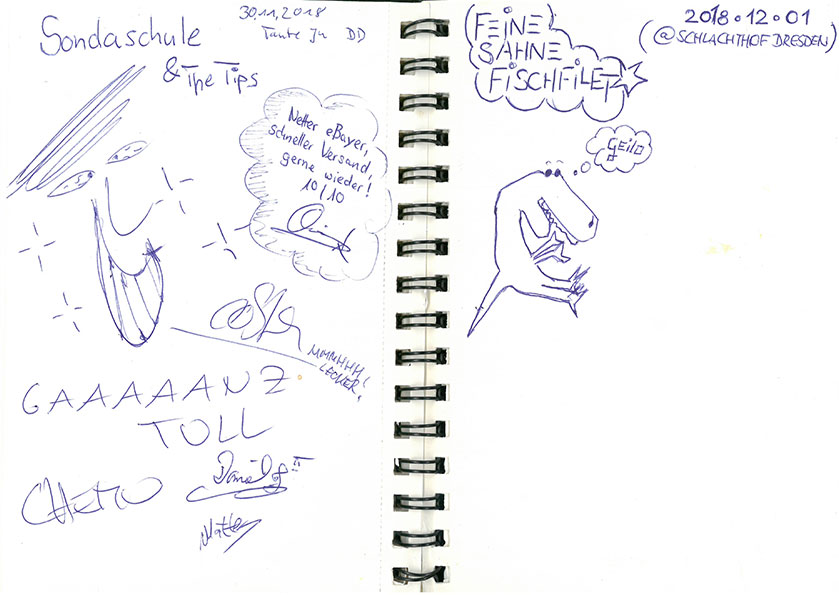 Sondaschule
& The Tips
30.11.2018
Tante Ju DD
Netter eBayer,
schneller Versand,
gerne wieder!
10/10
MMMHHH!
LECKER!
GAAAAANZ
TOLL
FEINE
SAHNE
FiSCHFiLET
2018.12.01
(@SCHLACHTHOF DRESDEN)
GEiLO